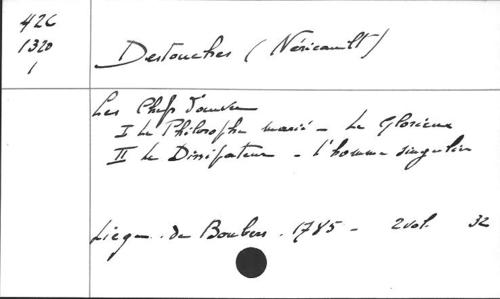 426
1320
1
Destouches (Néricault)
Les Chefs d'œuvre
I Le Philosophe marié - Le Glorieux
II Le Dissipateur - L'homme singulier
Liège . de Boubers . 1785 - 2 vol. 32